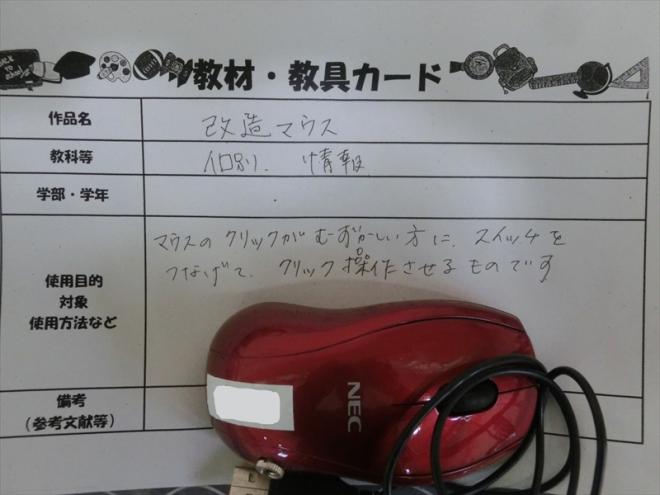 教材・教具カード
作品名
改造マウス
教科等
個別、情報
学部・学年
使用目的
対象
使用方法など
マウスのクリックがむずかしい方に、スイッチを
つなげて、クリック操作させるものです
備考
(参考文献等)
NEC